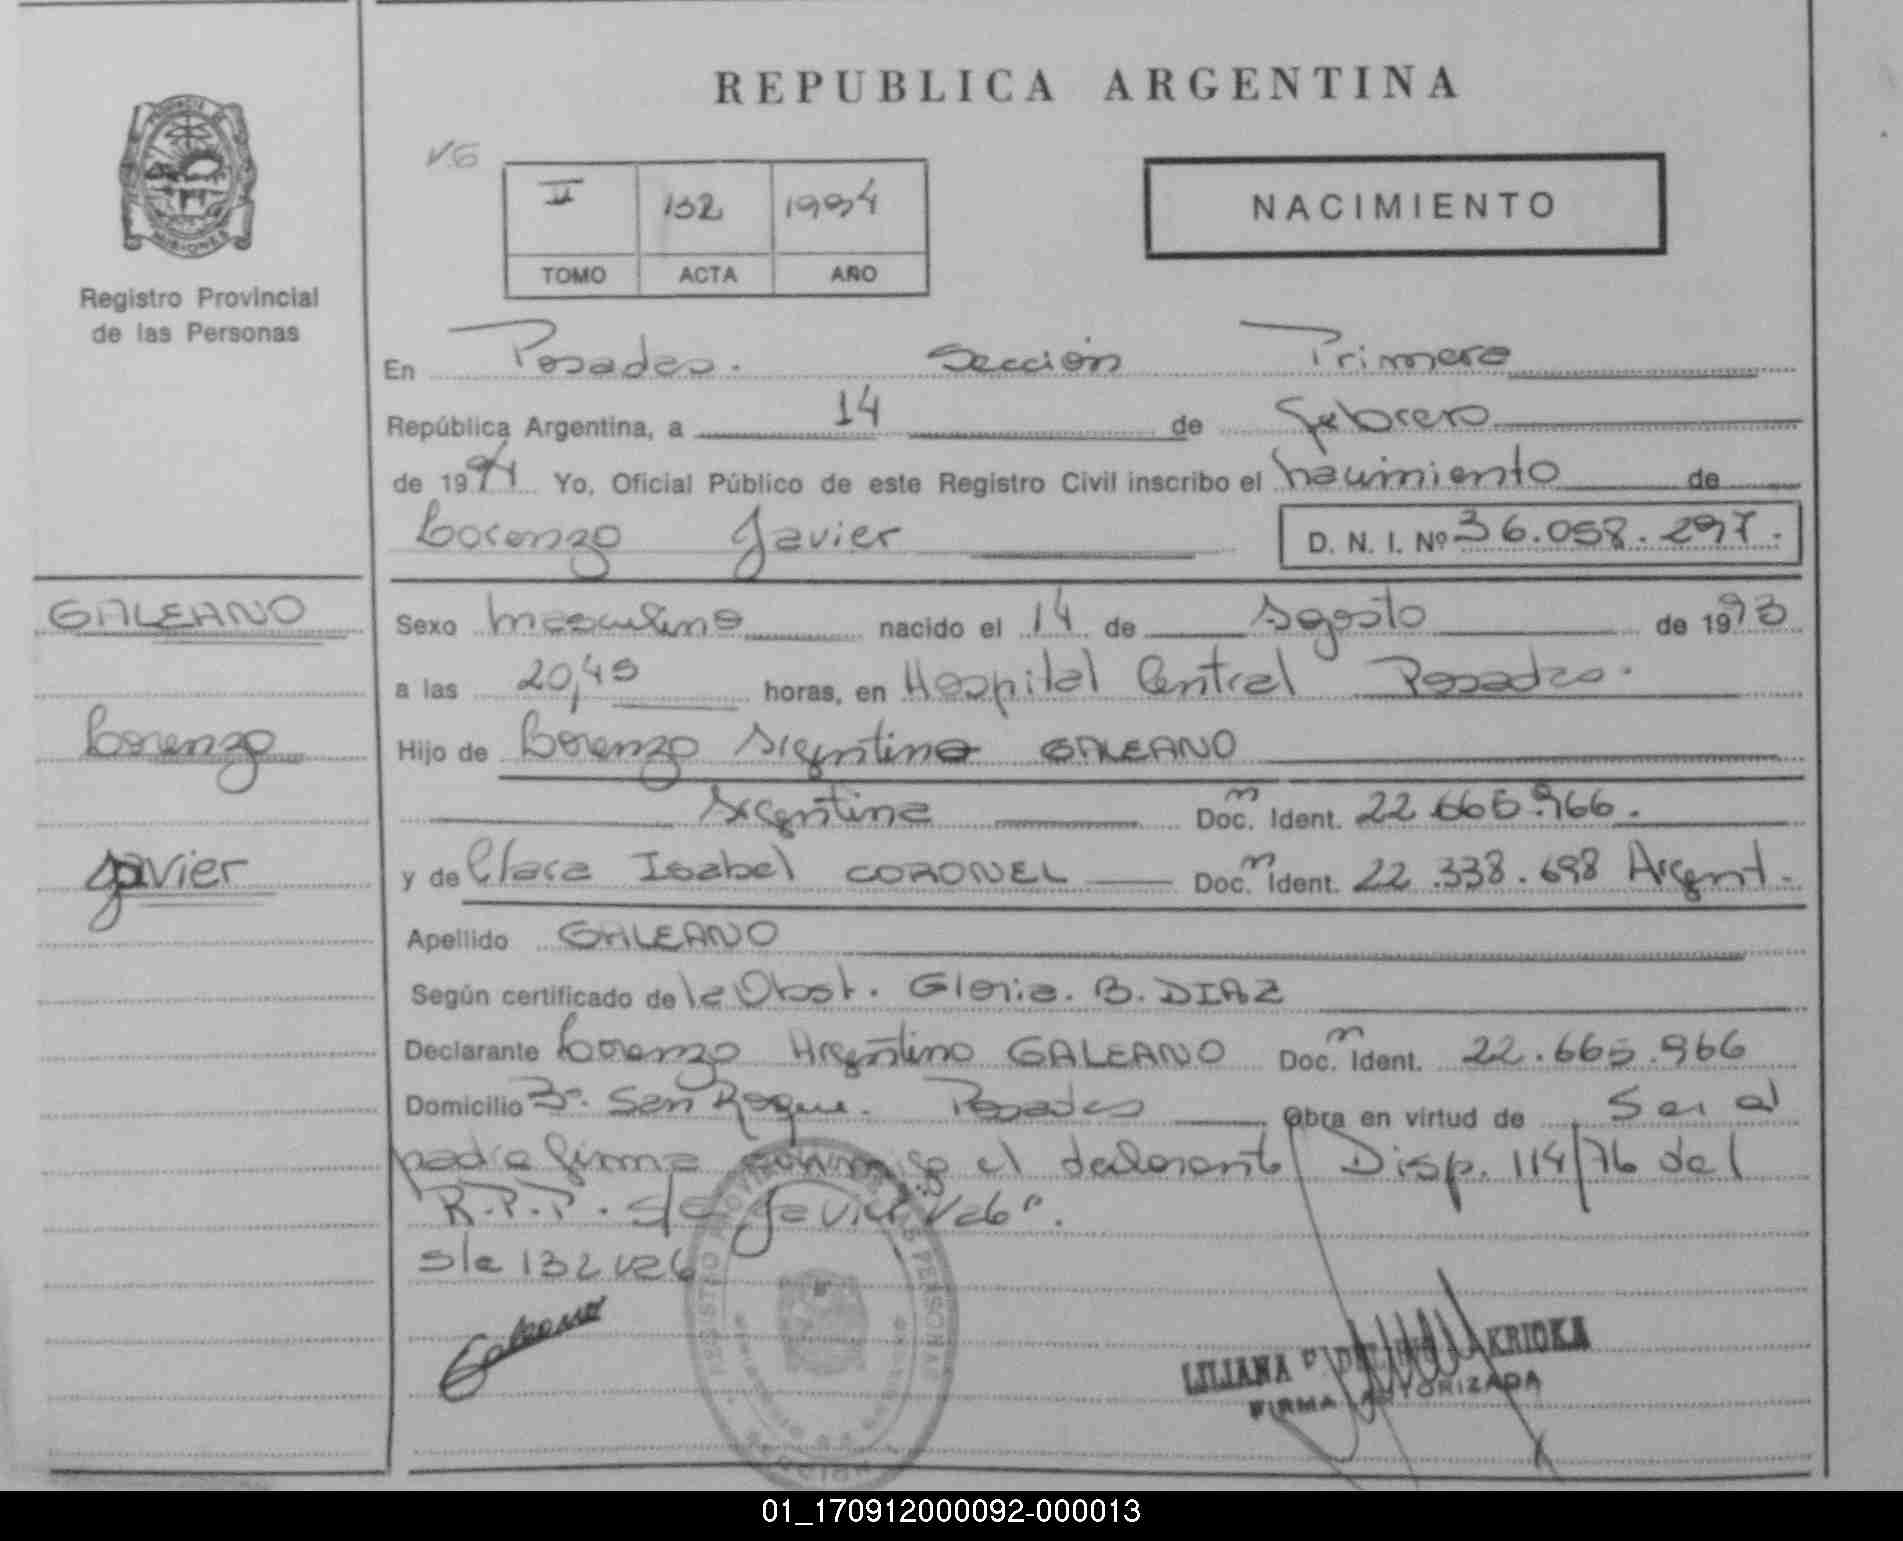 REPUBLICA ARGENTINA
PROVINCIA DE
MISIONES
Registro Provincial
de las Personas
V6
II 132 1994
TOMO ACTA AÑO
NACIMIENTO
En Posadas. Sección Primera
República Argentina, a 14 de febrero
de 1994 Yo, Oficial Público de este Registro Civil inscribo el nacimiento de
Lorenzo Javier D. N. I. Nº 36.058.297.
GALEANO
Lorenzo
Javier
Sexo masculino nacido el 14 de Agosto de 1993
a las 20,45 horas, en Hospital Central Posadas.
Hijo de Lorenzo Argentino GALEANO
Argentina Doc. n Ident. 22.665.966.
y de Clara Isabel CORONEL Doc. n Ident. 22.338.698 Argent.
Apellido GALEANO
Según certificado de la Obst. Gloria. B. DIAZ
Declarante Lorenzo Argentino GALEANO Doc. n Ident. 22.665.966
Domicilio Bº. San Roque. Posadas Obra en virtud de Ser el
padre firma conmigo el declarante Disp. 114/76 del
R.P.P. s/a Javier Vale.
s/a 132 vale
Galeano
REGISTRO PROVINCIAL DE LAS PERSONAS
LILIANA KRIOKA
FIRMA AUTORIZADA
01_170912000092-000013